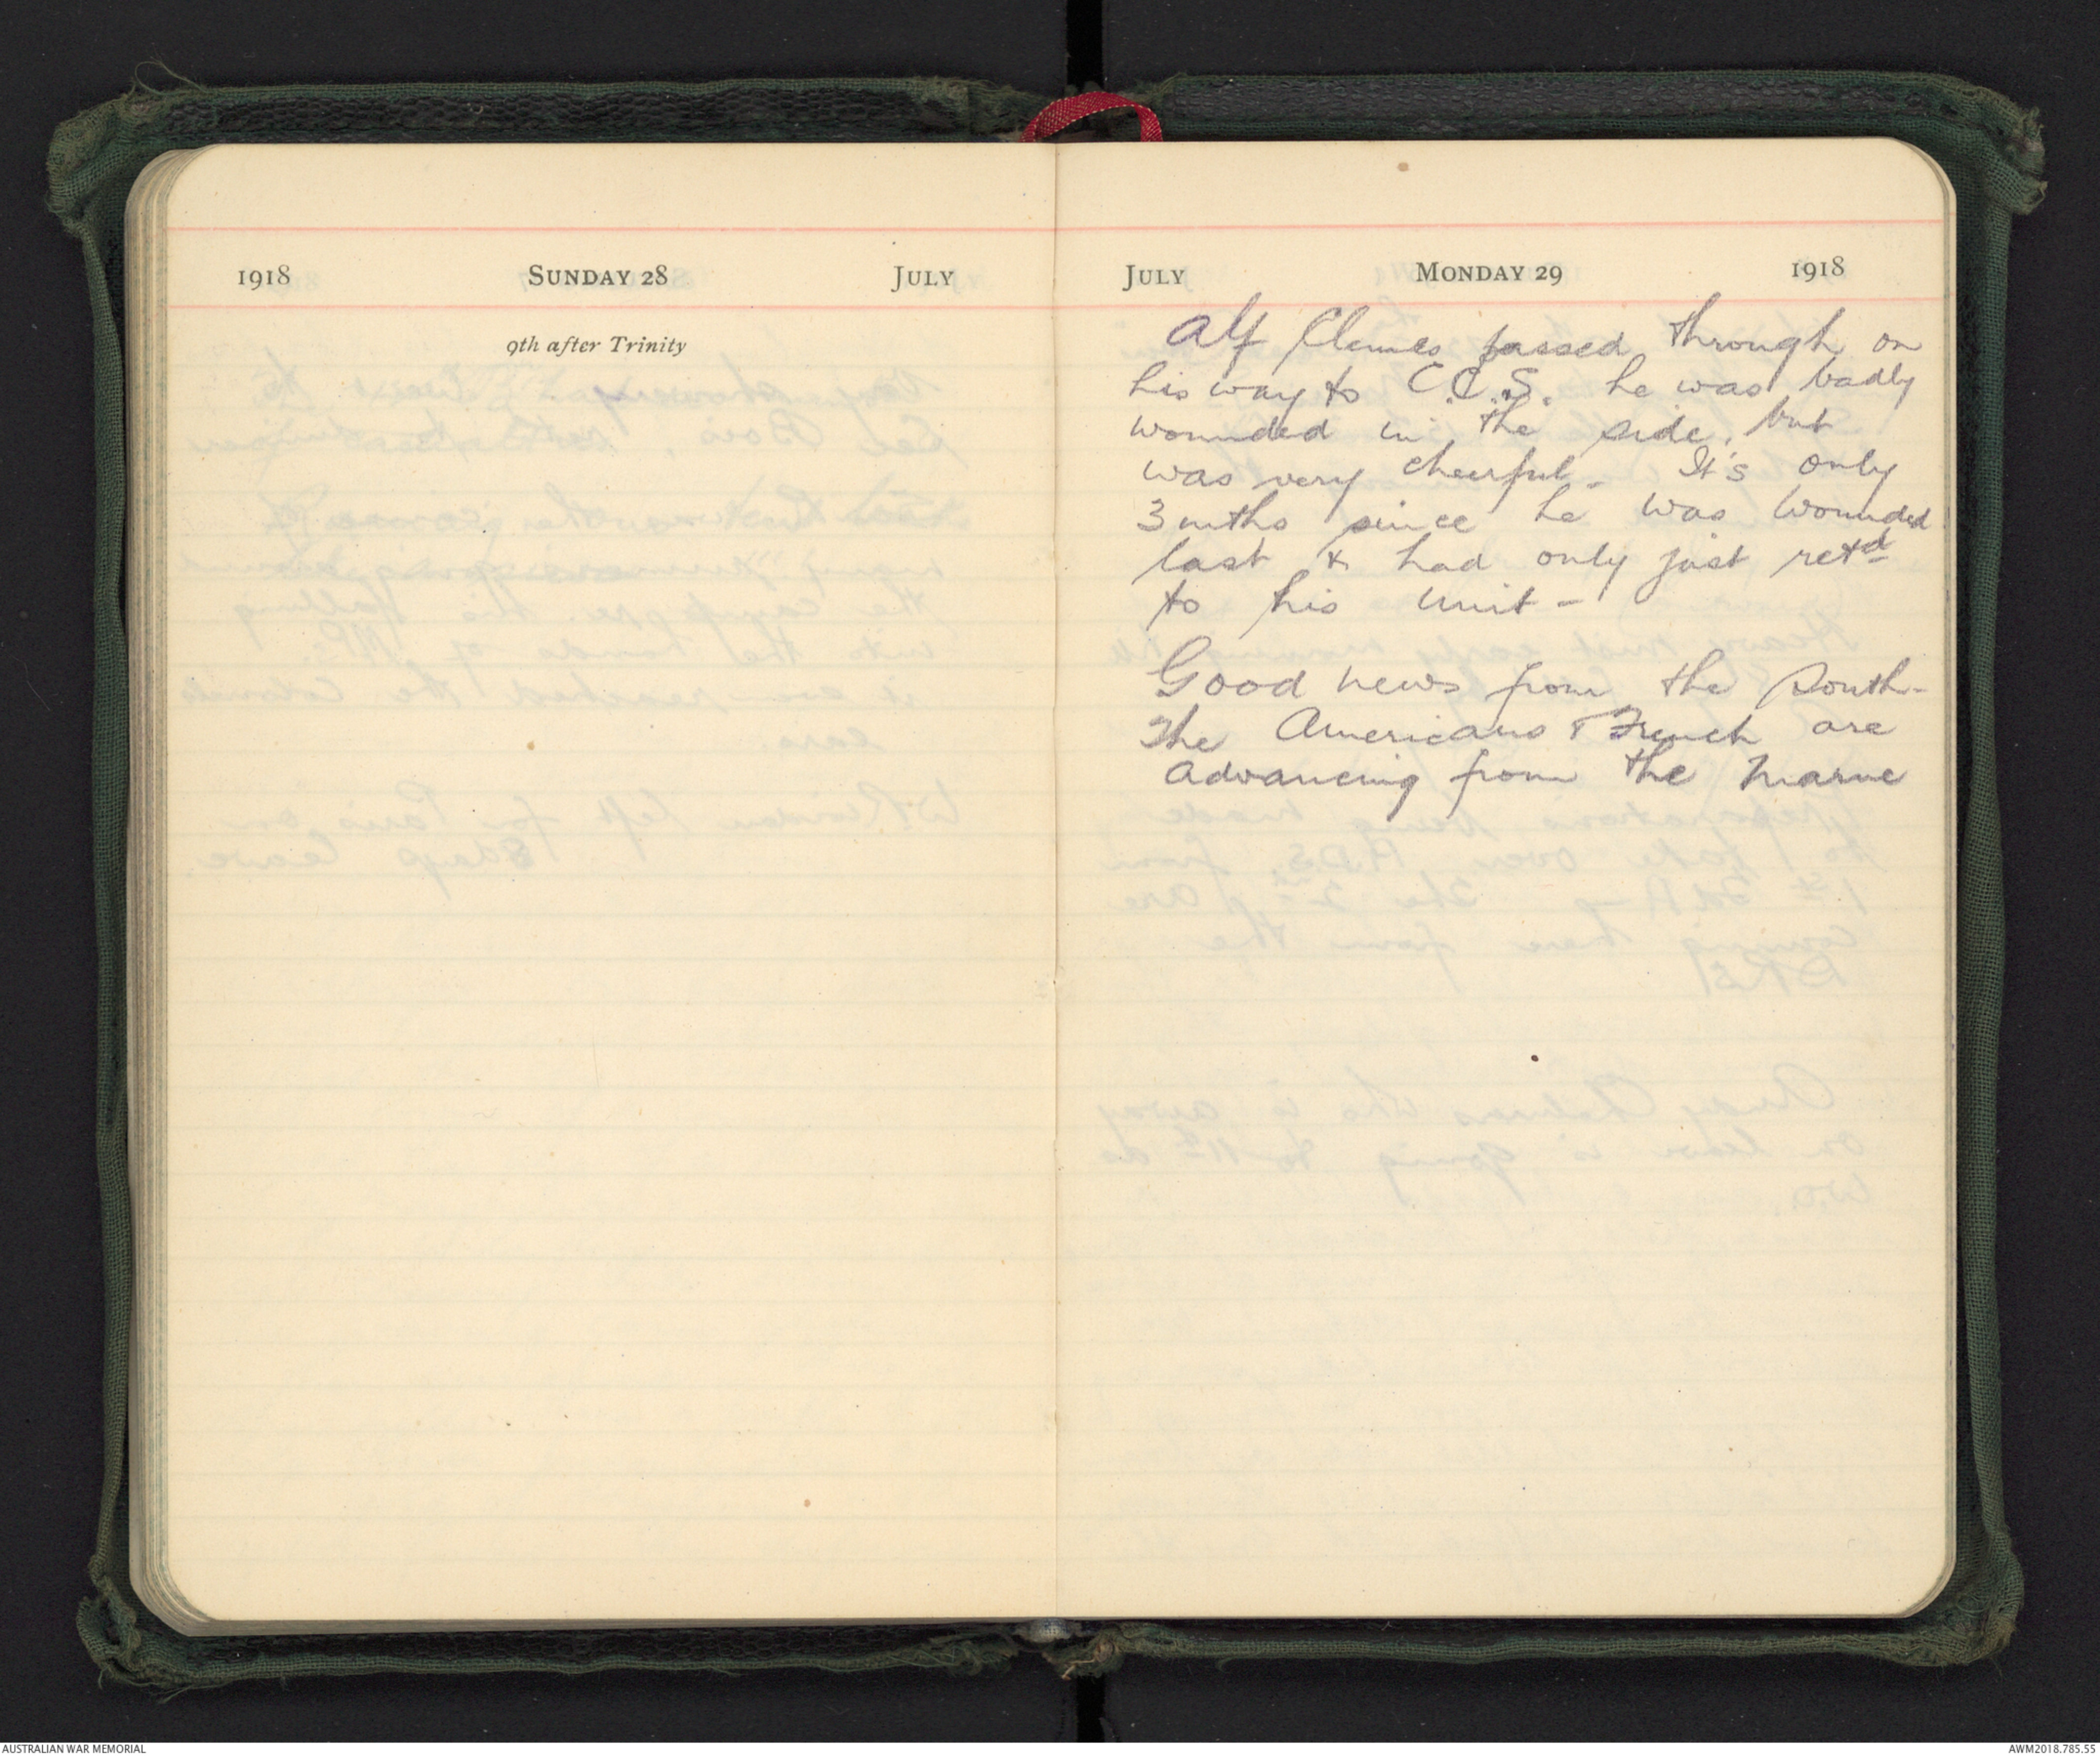 1918 SUNDAY 28 JULY
9th after Trinity
JULY MONDAY 29 1918
Alf Clemes passed through on
his way to C.C.S. he was badly
wounded in the side, but
was very cheerful - It's only
3 mths since he was wounded
last & had only just retd
to his unit -
Good news from the South -
The Americans & French are
advancing from the Marne
AUSTRALIAN WAR MEMORIAL
AWM2018.785.55